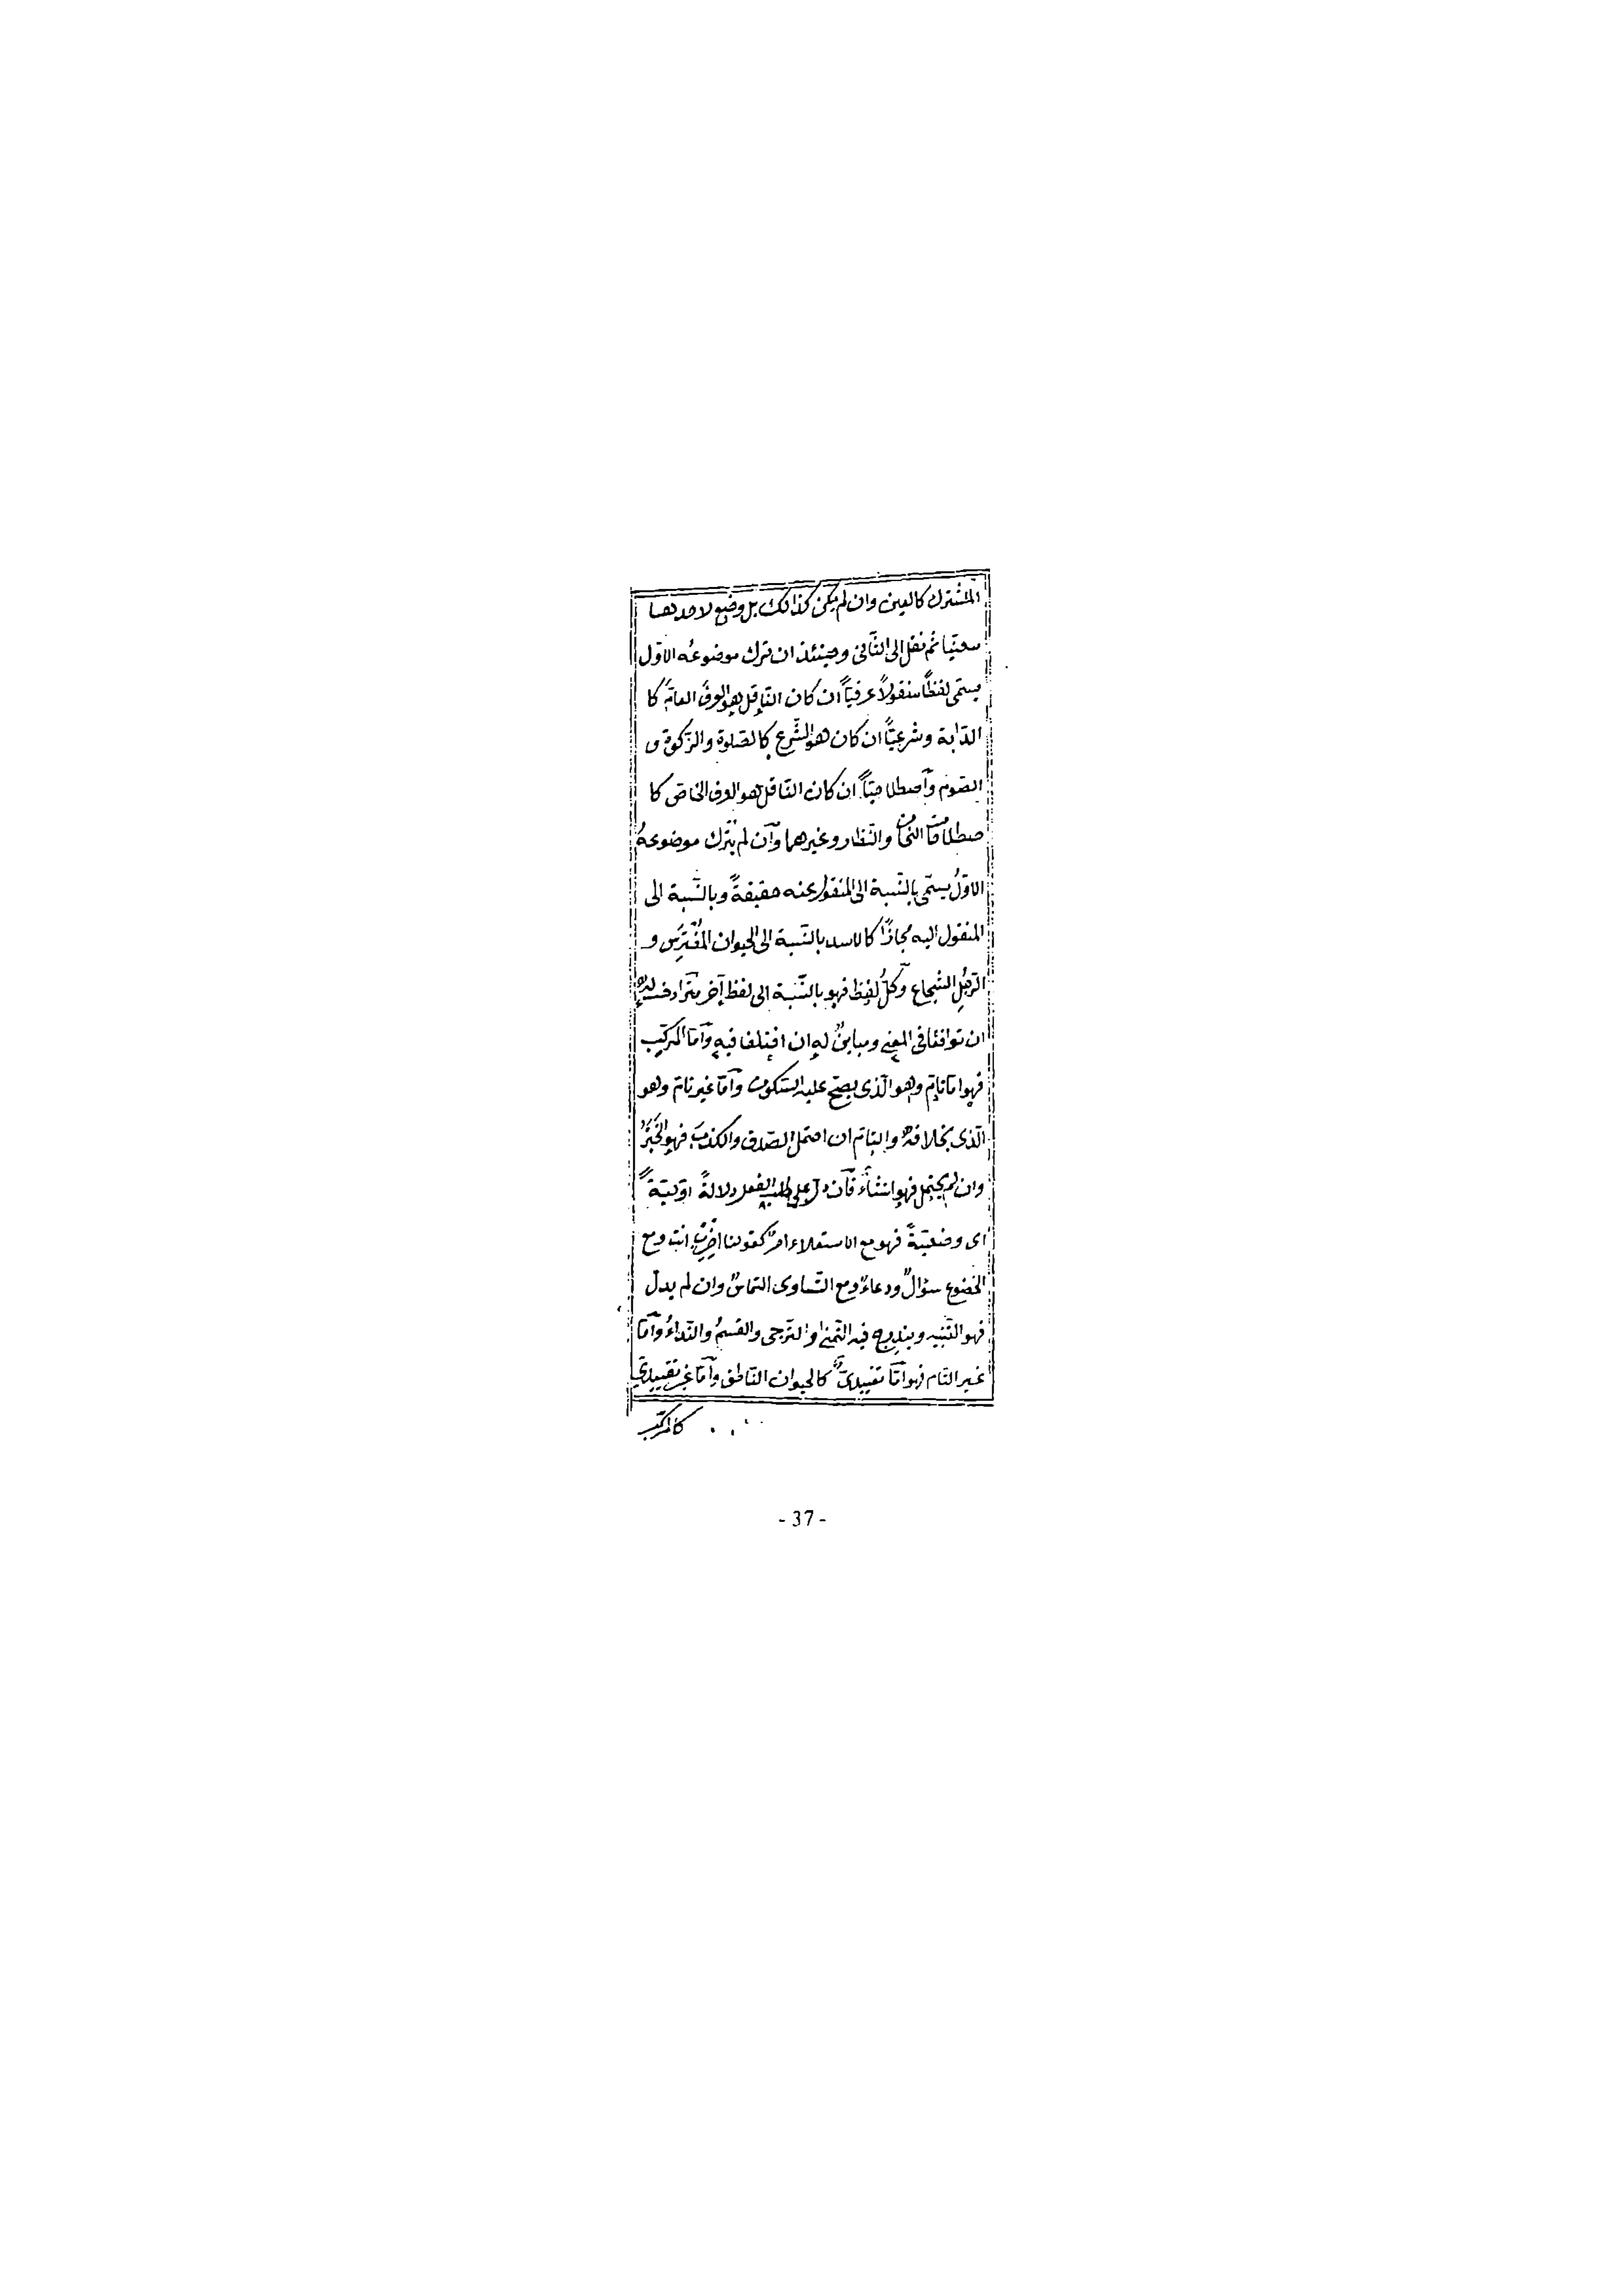 المشترك كالعين وان لم يكن كذالك بل وضع لاحدهما
معيّنا ثم نقل الى الثّانى وحينئذ ان ترك موضوعُه الاوّل
يسمّى لفظًا منقولاً عرفيّاً ان كان النّاقل هو العرفُ العامُّ كا
الدّابة وشرعيّاً ان كان هو الشّرع كالصّلوة والزّكوة و
الصّوم وآصطلاحيّاً ان كان النّاقل هو العرف الخاصّ كا
صطلاحات النحاة والنّظار وغيرهما وآن لم يترك موضوعهُ
الاوّلُ يسمّى بالنّسبة الى المنقول عنه حقيقةً وبالنّسبة الى
المنقول اليه مجازًا كالاسد بالنّسبة الى الحيوان المُفْتَرِس و
الرّجُلِ الشّجاع وكلّ لفظ فهو بالنّسبة الى لفظ آخر مترادف له
ان توافقا فى المعنى ومباينٌ له ان اختلفا فيه وآمّا المركّب
فهو امّا تامّ وهو الّذى يصحّ عليه السّكوت وآمّا غير تامّ وهو
الّذى بخلافه والتامّ ان احتمل الصّدق والكذب فهو الخَبَرُ
وان لم يحتمل فهو انشاء فآن دلّ على طلب الفعل دلالةً اوّليّةً
اى وضعيّةً فهو مع الاستعلاء امرٌ كقولنا اِضْرِبْ انت ومع
الخضوع سؤالٌ ودعاءٌ ومع التّساوى التماسٌ وان لم يدلّ
فهو التّنبيه ويندرج فيه التّمنّى والترّجى والقسمُ والنّداءُ وآمّا
غير التّام فهو امّا تقييدىٌّ كالحيوان النّاطق وآمّا غير تقييدىّ
كالمركّب
- 37 -